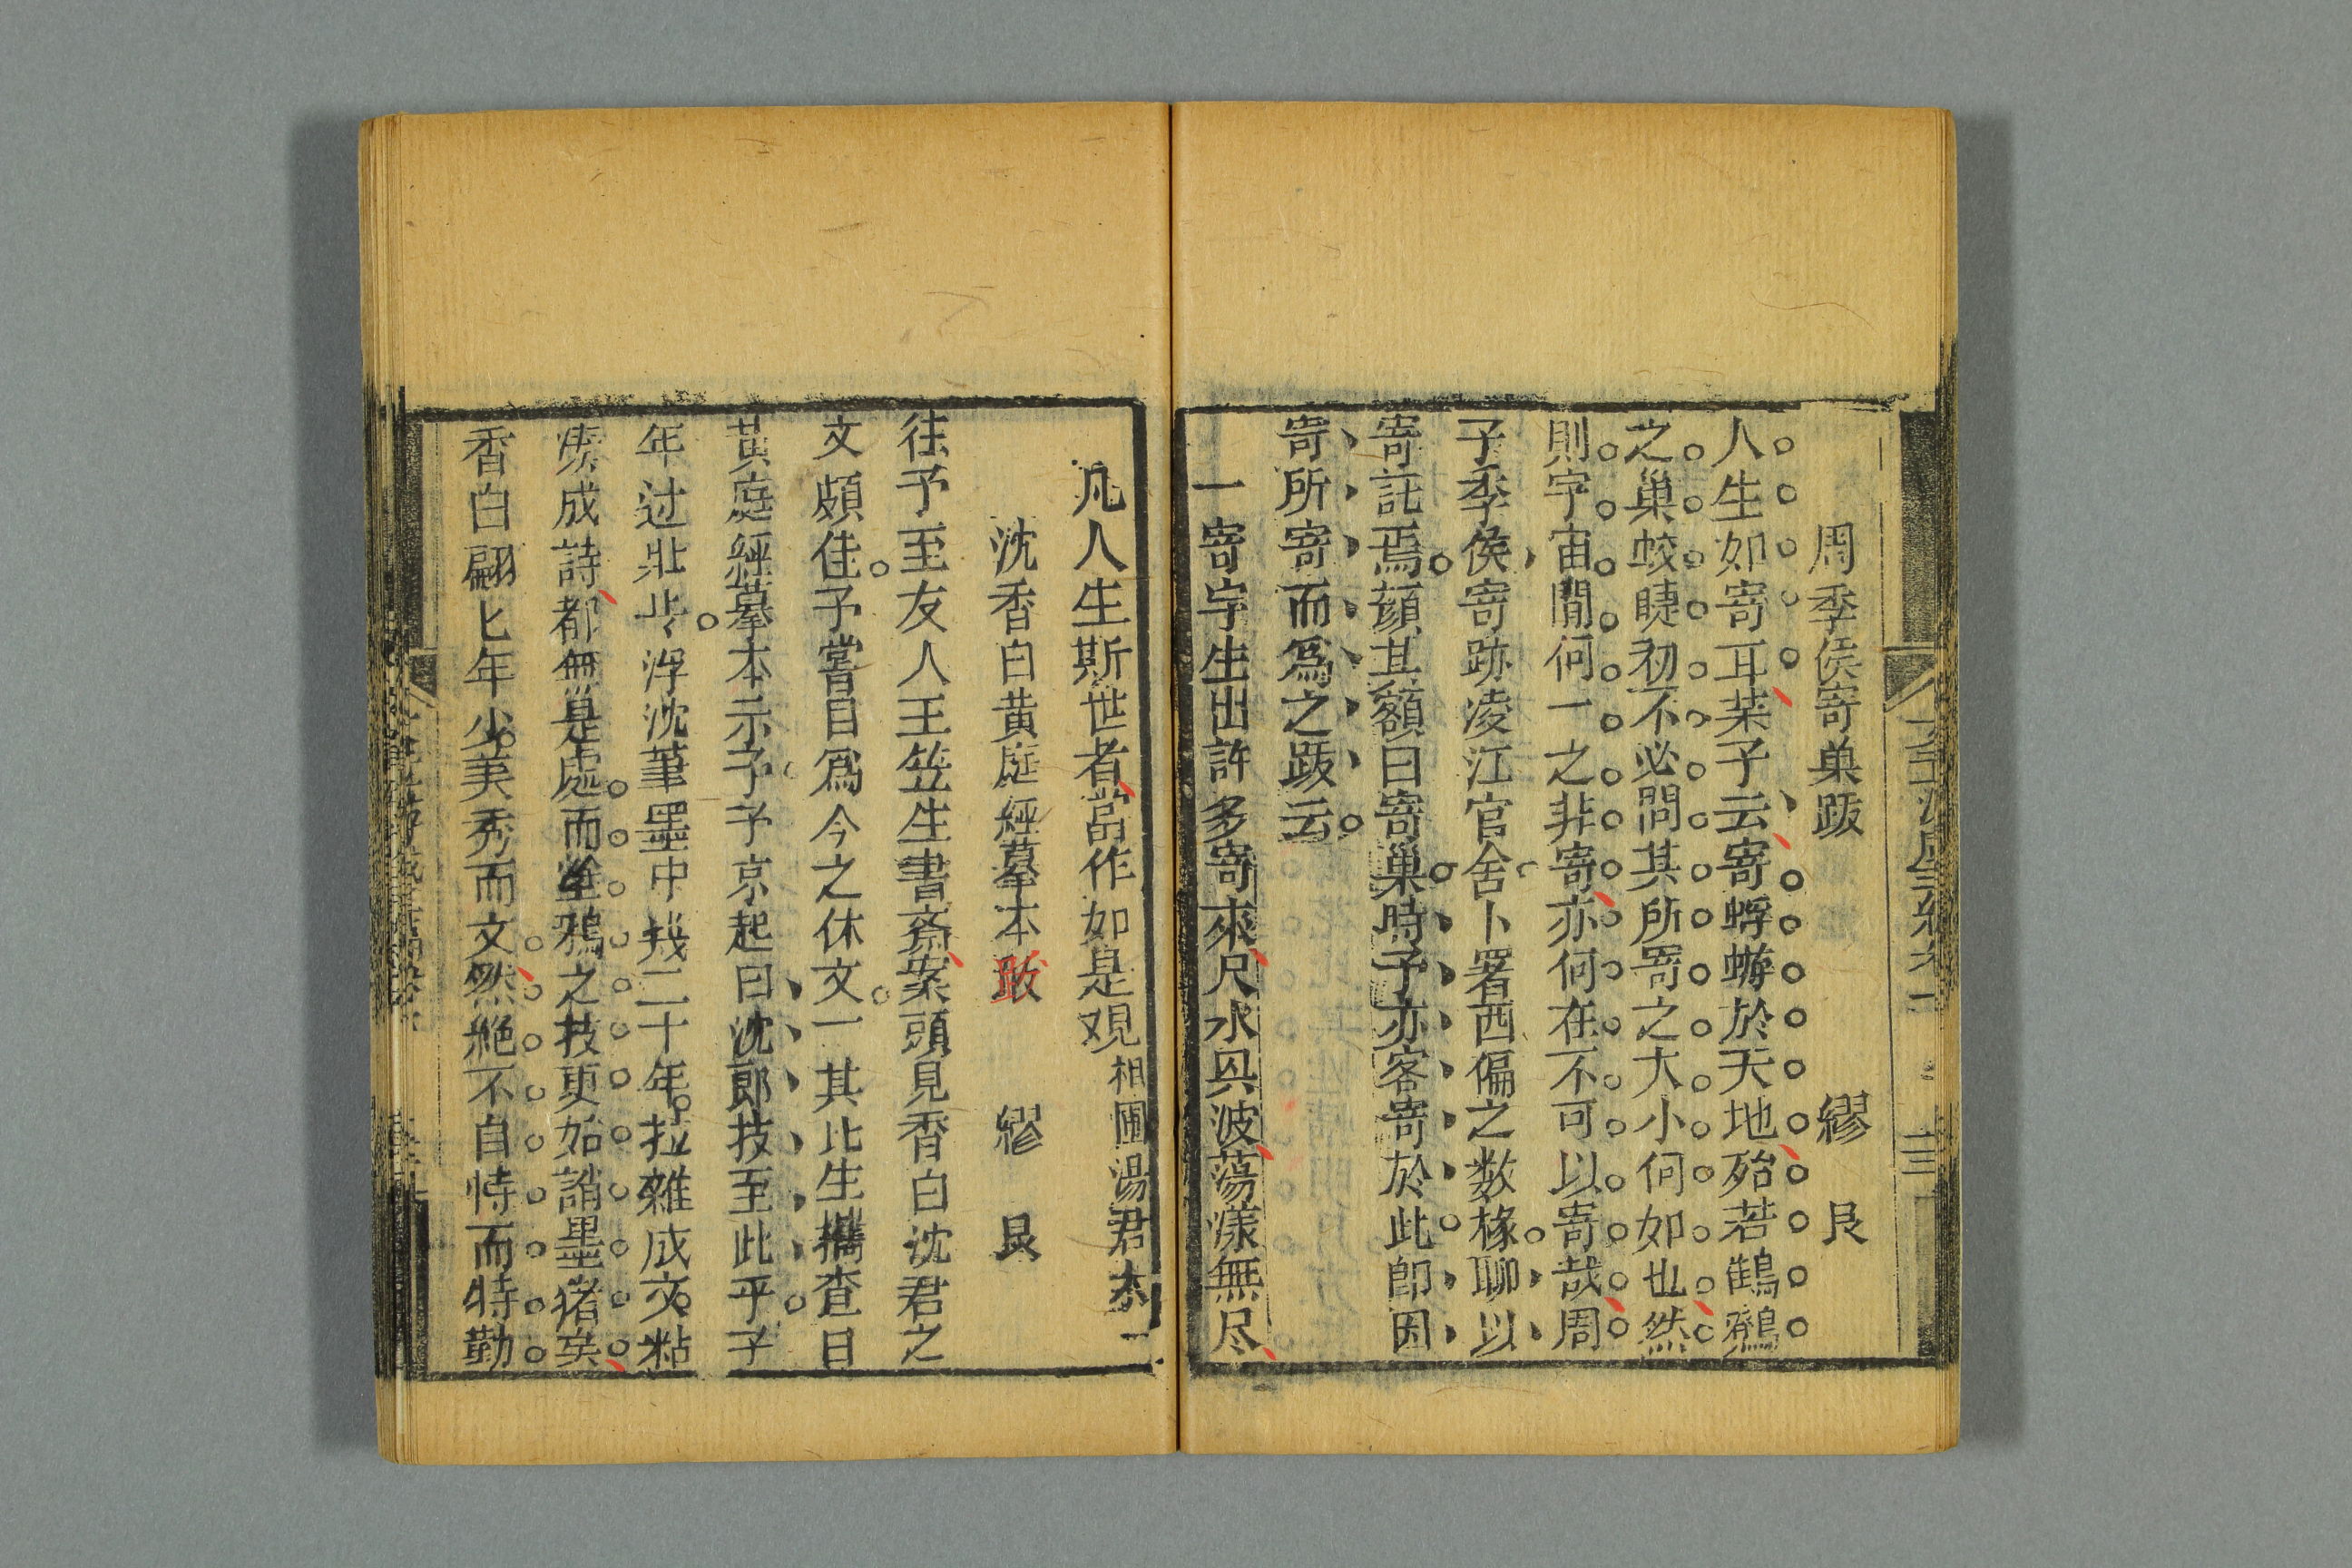 周季侯寄巢跋 繆 艮
人生如寄耳某子云寄蜉蝣於天地殆若鶴鷦
之巢蛟睫初不必問其所寄之大小何如也然
則宇宙間何一之非寄亦何在不可以寄哉周
子季侯寄跡淩江官舍卜署西偏之数椽聊以
寄託焉顏其額曰寄巢時予亦客寄於此即因
寄所寄而為之跋云
一寄字生出許多寄來尺水具波蕩漾無尽
凡人生斯世者當作如是观相圃湯君本
沈香白黃庭經摹本跋 繆 艮
往予至友人王笠生書斎案頭見香白沈君之
文頗佳予嘗目為今之休文一其比生攜查目
黃庭經摹本示予予京起曰沈郎技至此乎子
年过壯非浮沈筆墨中幾二十年拉雜成文粘
湊成詩都無是處而塗鴉之技更始誚墨猪矣
香白翩匕年少美秀而文然絕不自恃而特勤